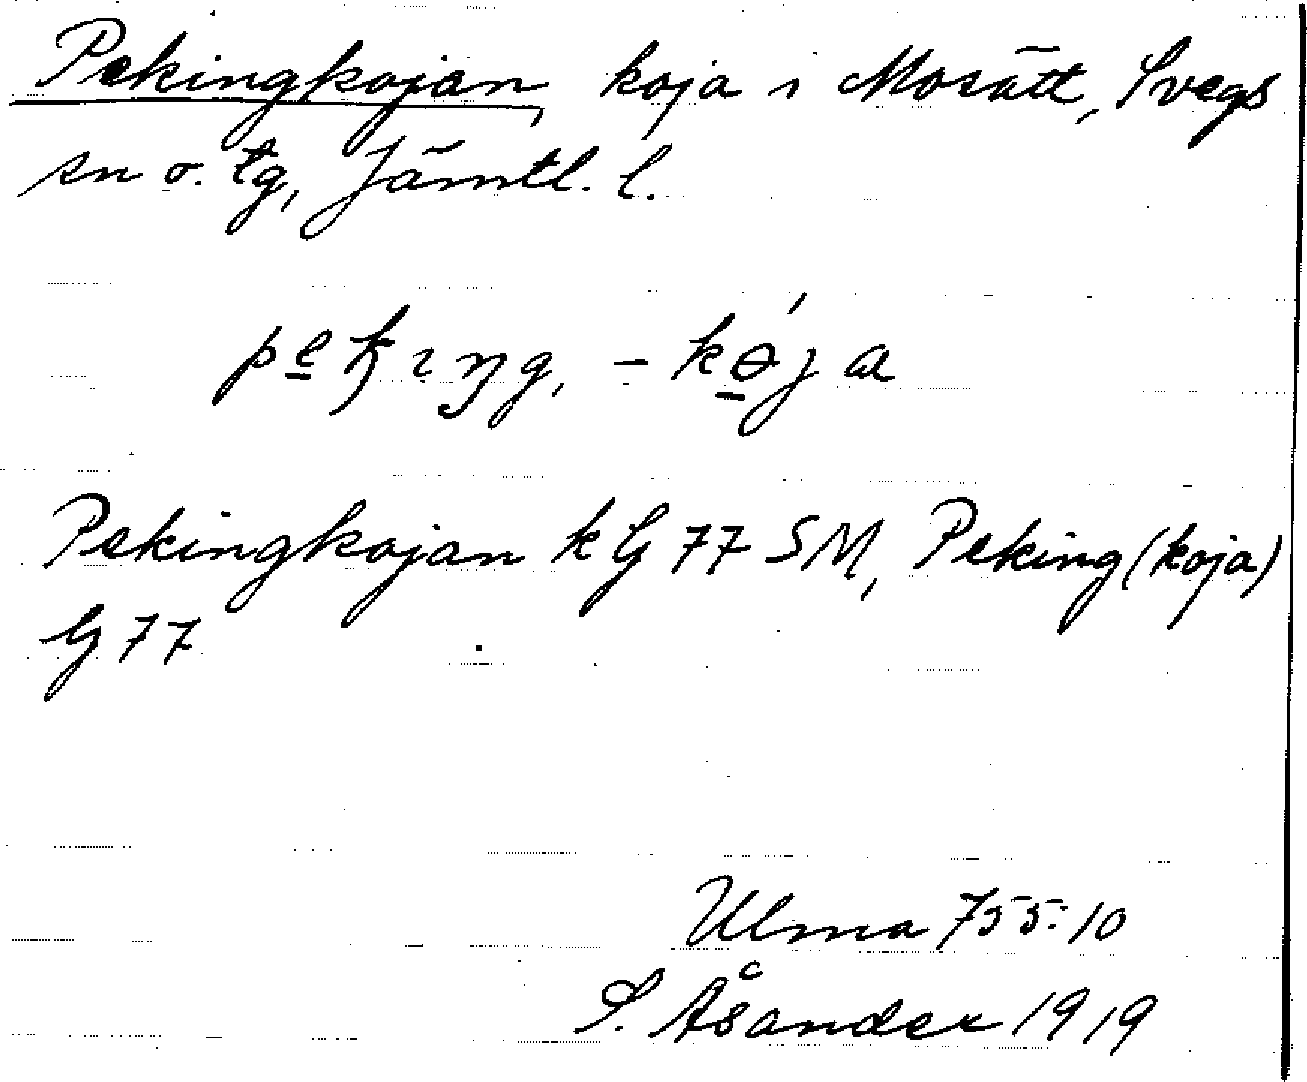 Pekingkojan, koja i Mosätt, Svegs
sn o. tg, Jämtl. l.
pe̱kıŋg, - kɵ̱́ja
Pekingkojan k G 77 SM, Peking (koja)
G 77
Ulma 755:10
S. Åsander 1919